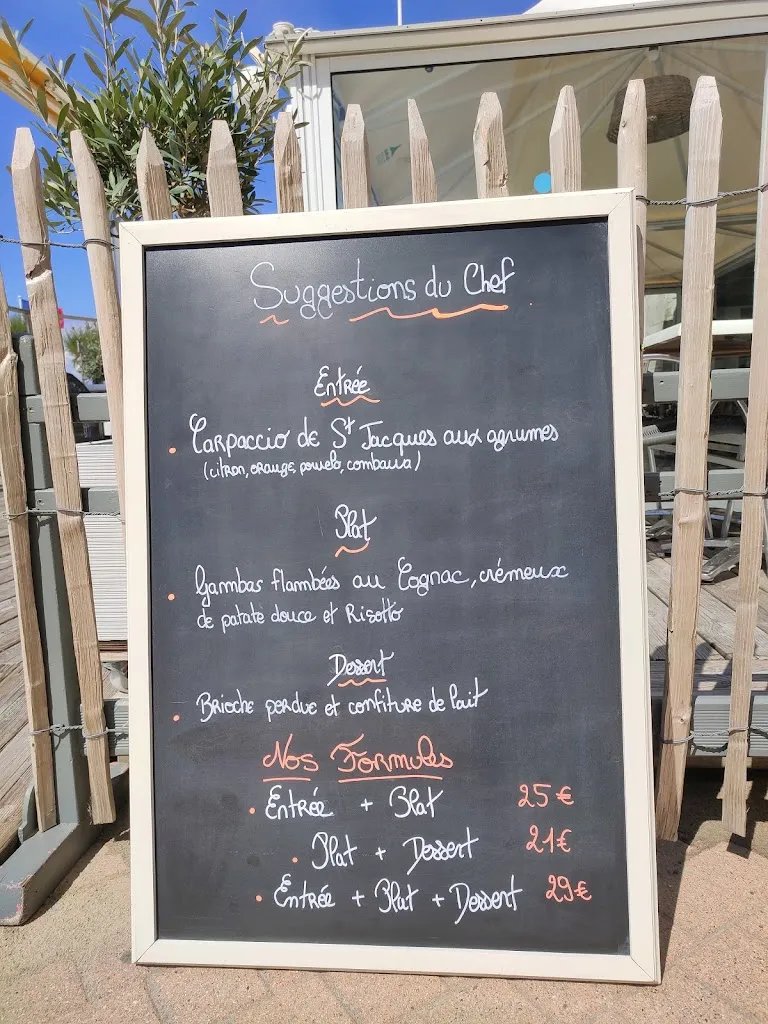 Suggestions du Chef
Entrée
• Carpaccio de St Jacques aux agrumes
(citron, orange, pomelo, combawa)
Plat
• Gambas flambées au Cognac, crémeux
de patate douce et Risotto
Dessert
• Brioche perdue et confiture de lait
Nos Formules
• Entrée + Plat 25€
• Plat + Dessert 21€
• Entrée + Plat + Dessert 29€